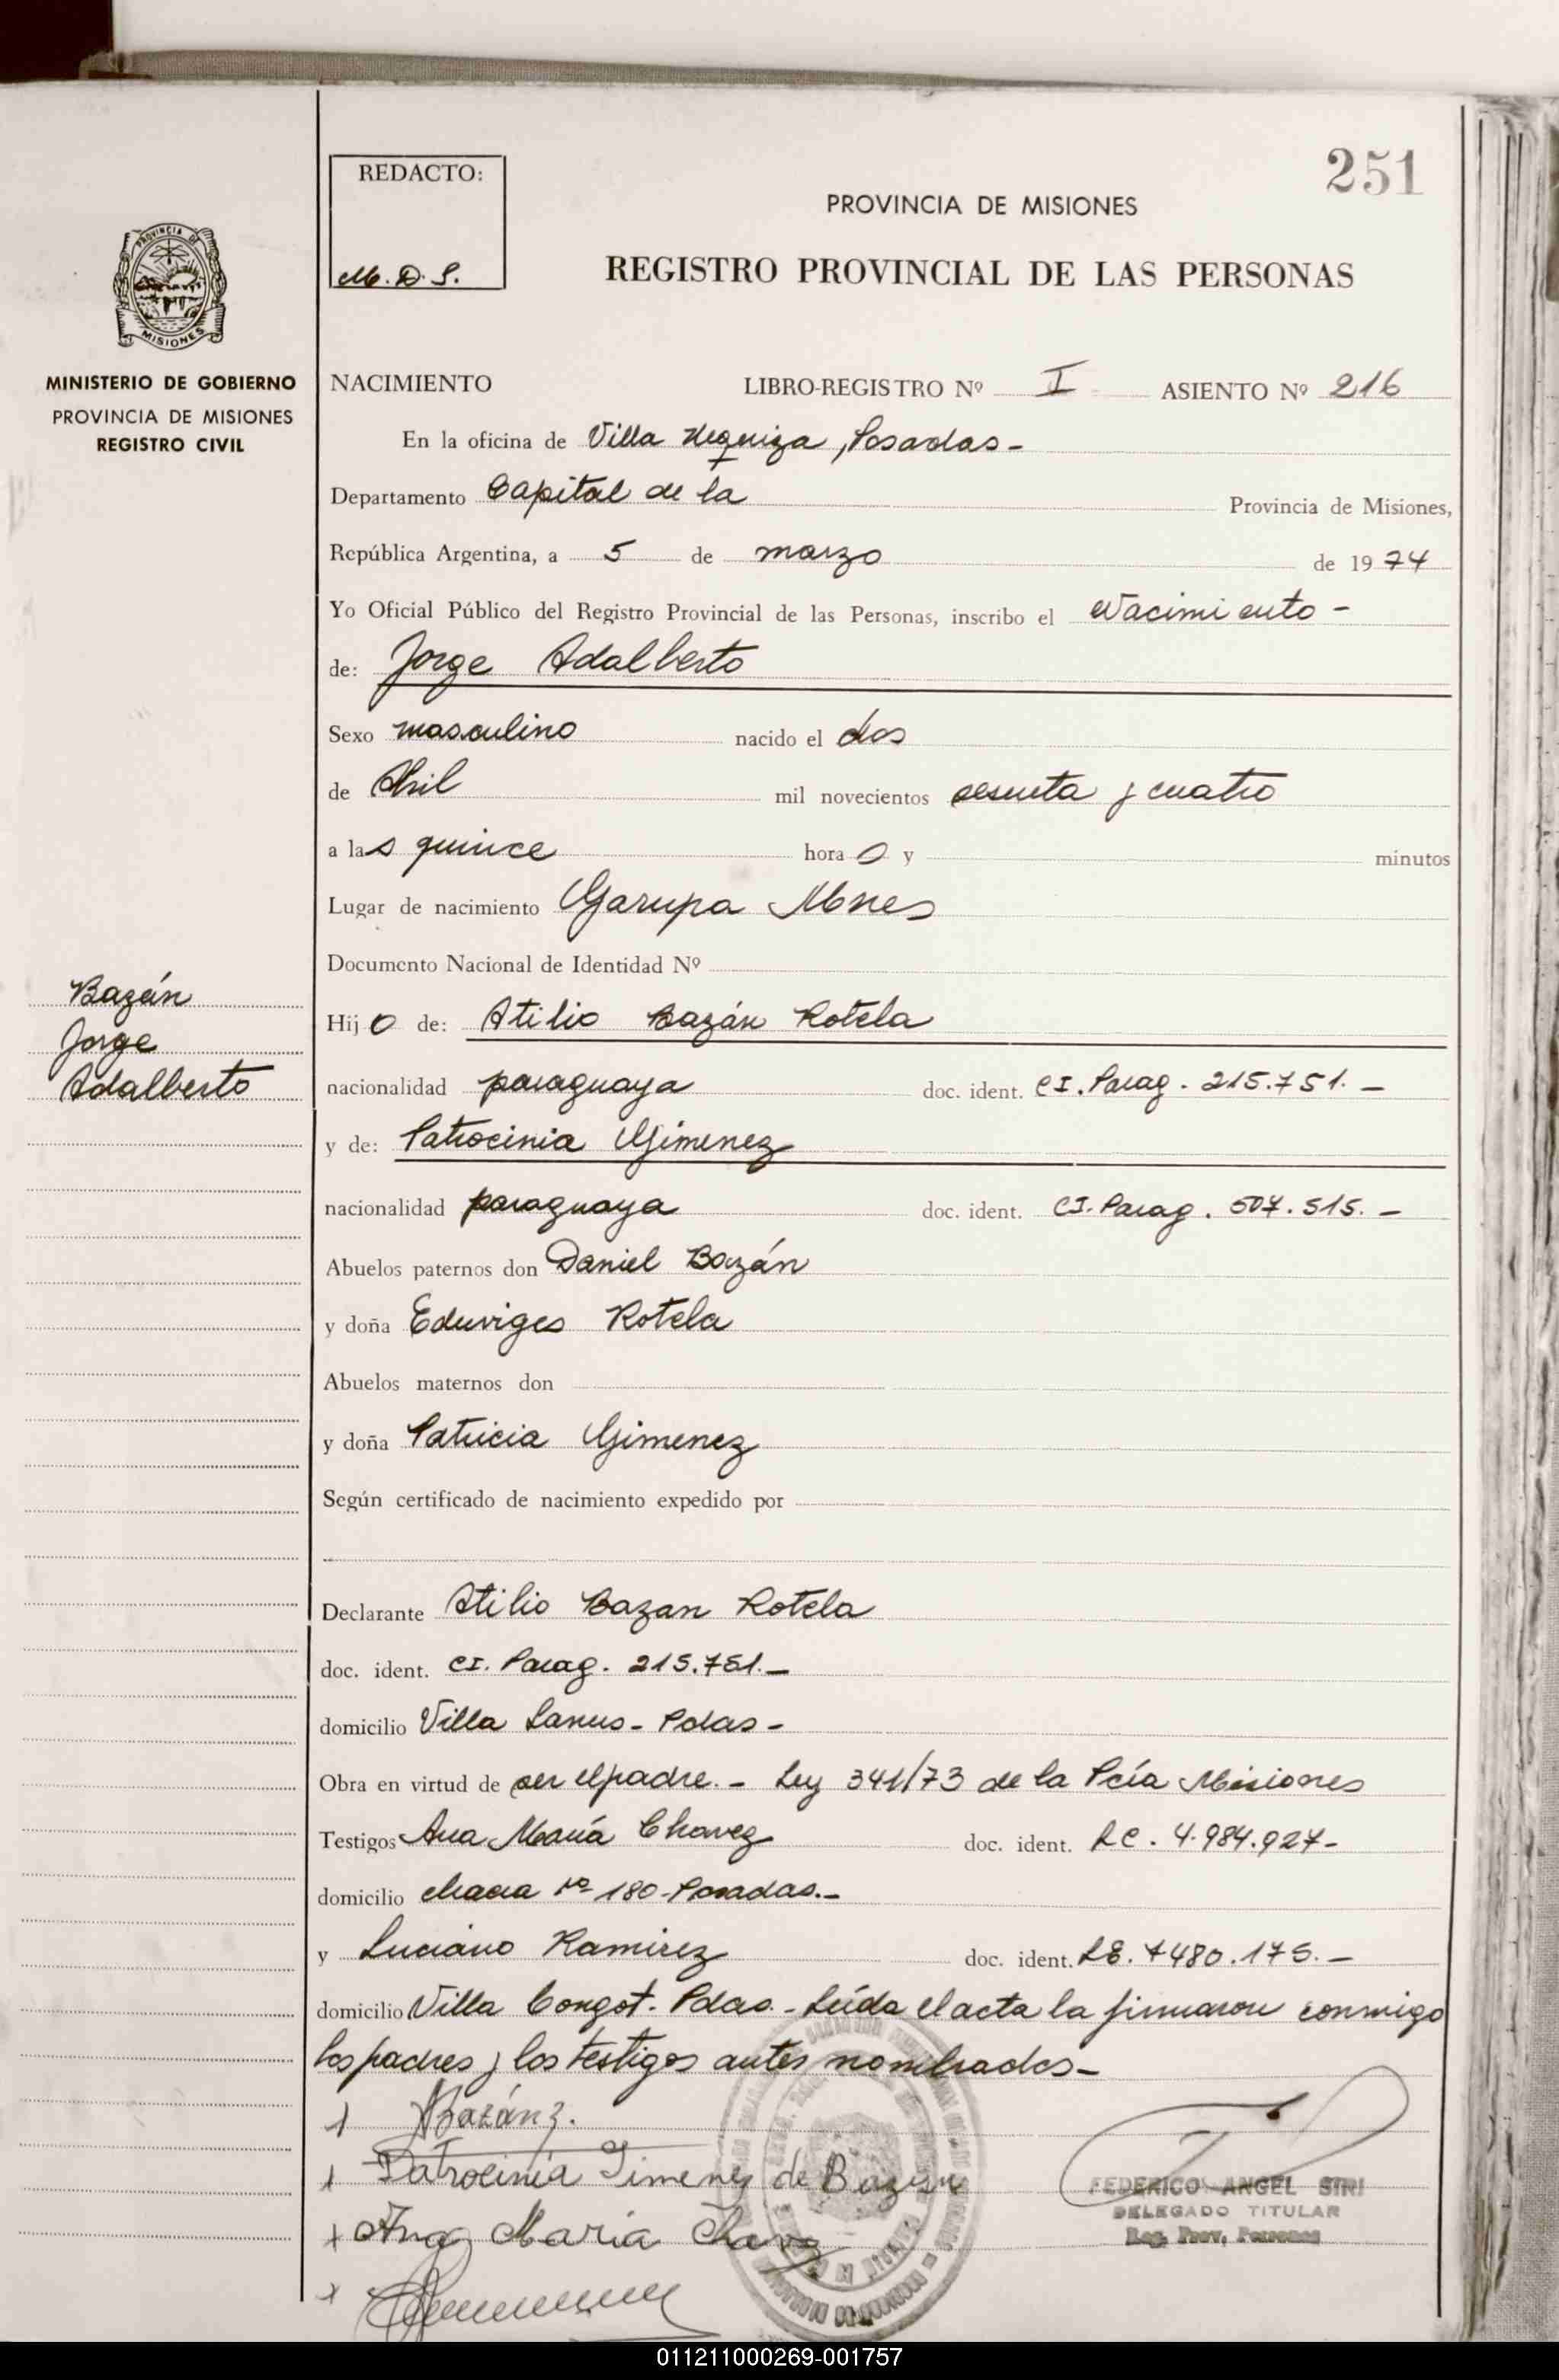 251
REDACTO:
M. D. S.
PROVINCIA DE MISIONES
REGISTRO PROVINCIAL DE LAS PERSONAS
PROVINCIA DE
MISIONES
MINISTERIO DE GOBIERNO
PROVINCIA DE MISIONES
REGISTRO CIVIL
NACIMIENTO LIBRO-REGISTRO Nº I ASIENTO Nº 216
En la oficina de Villa Urquiza, Posadas-
Departamento Capital de la Provincia de Misiones,
República Argentina, a 5 de marzo de 1974
Yo Oficial Público del Registro Provincial de las Personas, inscribo el Nacimiento -
de: Jorge Adalberto
Sexo masculino nacido el dos
de Abril mil novecientos sesenta y cuatro
a las quince hora 0 y minutos
Lugar de nacimiento Garupa Mnes
Documento Nacional de Identidad Nº
Bazán
Jorge
Adalberto
Hijo de: Atilio Bazán Rotela
nacionalidad paraguaya doc. ident. CI. Parag. 215.751. -
y de: Patrocinia Gimenez
nacionalidad paraguaya doc. ident. CI. Parag. 507.515. -
Abuelos paternos don Daniel Bazán
y doña Eduviges Rotela
Abuelos maternos don
y doña Patricia Gimenez
Según certificado de nacimiento expedido por
Declarante Atilio Bazan Rotela
doc. ident. CI. Parag. 215.751.-
domicilio Villa Lanus - Pdas -
Obra en virtud de ser el padre. - Ley 341/73 de la Pcía Misiones
Testigos Ana María Chavez doc. ident. LC. 4.984.927-
domicilio chacra Nº 180-Posadas.-
y Luciano Ramirez doc. ident. LE. 7480.175.-
domicilio Villa Longot. Pdas. - Leída el acta la firmaron conmigo
los padres y los testigos antes nombrados-
Bazán
Patrocinia Jimenez de Bazan
Ana Maria Chavez
FEDERICO ANGEL SIRI
DELEGADO TITULAR
Reg. Prov. Personas
011211000269-001757